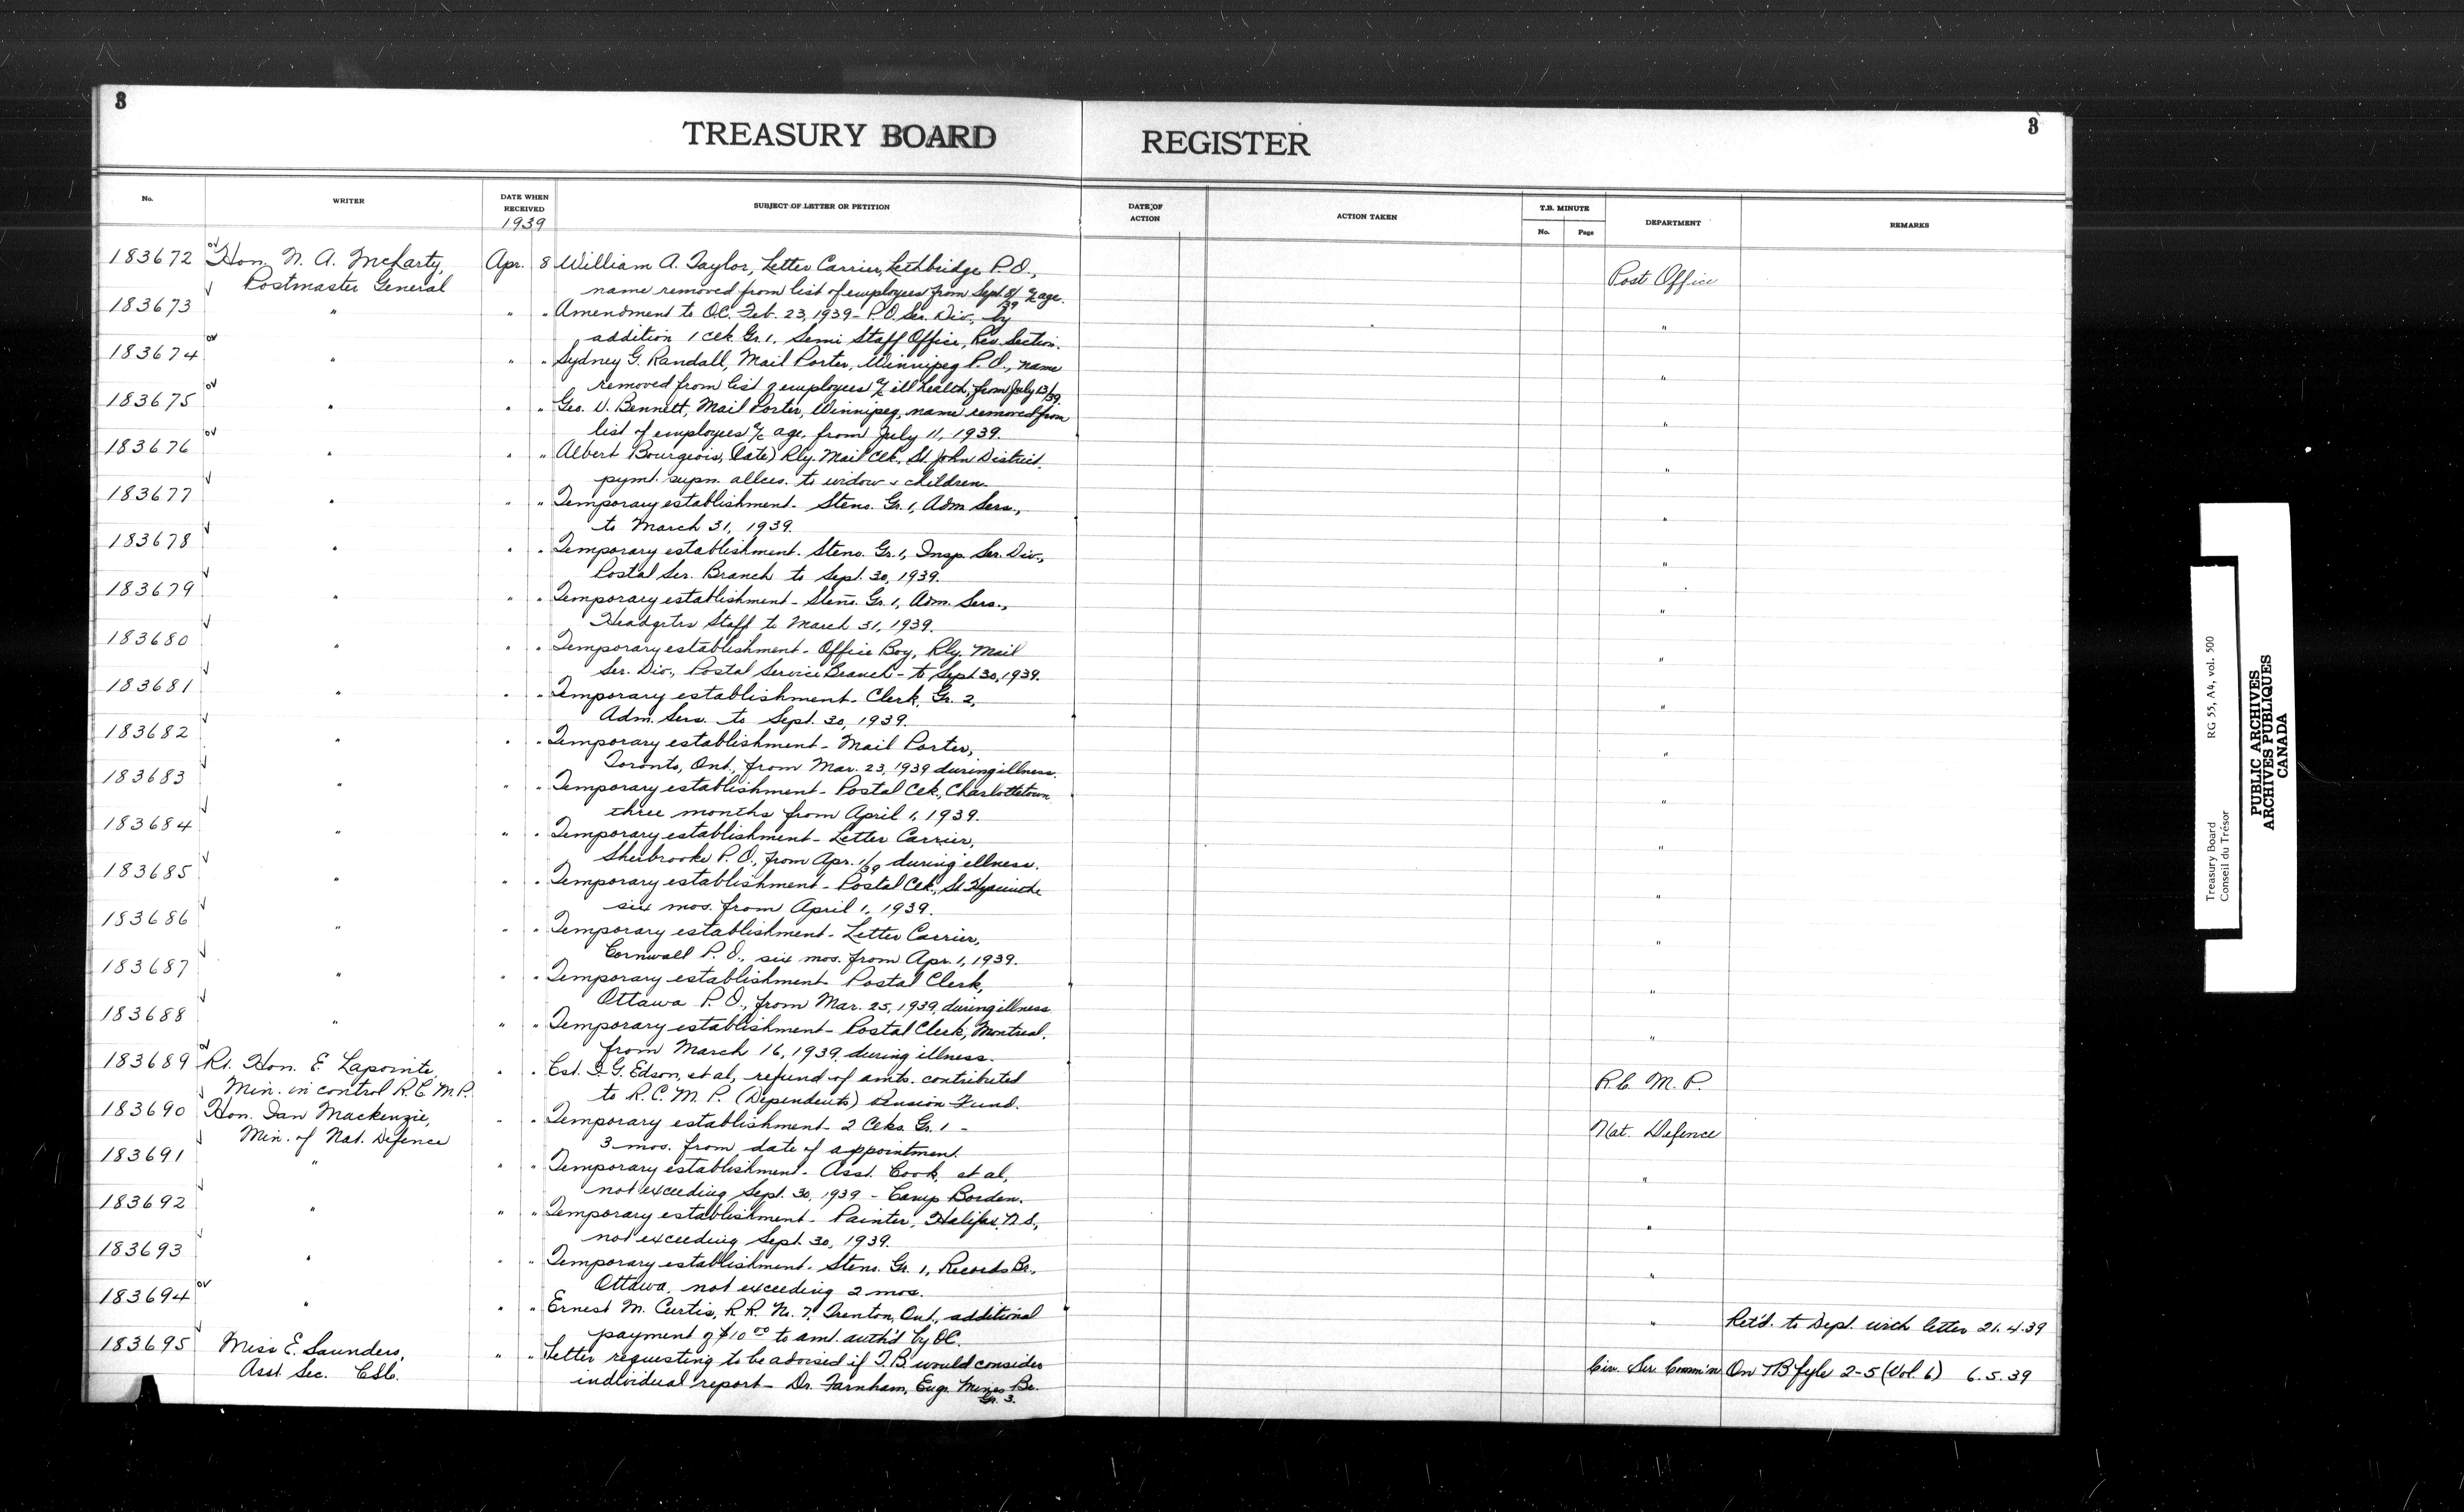 3
3
TREASURY BOARD REGISTER
No. WRITER DATE WHEN RECEIVED SUBJECT OF LETTER OR PETITION DATE OF ACTION ACTION TAKEN T.B. MINUTE No. Page DEPARTMENT REMARKS
1939
183672 Hon. N. A. McLarty, Apr. 8 William A. Taylor, Letter Carrier, Lethbridge P.O., Post Office
Postmaster General name removed from list of employees from Sept. 8/39 a/c age.
183673 " " " Amendment to O.C. Feb. 23, 1939 - P.O. Ser. Div., by "
addition 1 clk. Gr. 1, Semi Staff Office, Rev. Section.
183674 " " " Sydney G. Randall, Mail Porter, Winnipeg P.O., name "
removed from list of employees a/c ill health, from July 13/39.
183675 " " " Geo. V. Bennett, Mail Porter, Winnipeg, name removed from "
list of employees a/c age, from July 11, 1939.
183676 " " " Albert Bourgeois, (late) Rly. Mail Clk., St. John District, "
pymt. supn. allces. to widow & children.
183677 " " " Temporary establishment - Steno. Gr. 1, Adm. Sers., "
to March 31, 1939.
183678 " " " Temporary establishment - Steno. Gr. 1, Insp. Ser. Div., "
Postal Ser. Branch to Sept. 30, 1939.
183679 " " " Temporary establishment - Steno. Gr. 1, Adm. Sers., "
Headqrtrs Staff to March 31, 1939.
183680 " " " Temporary establishment - Office Boy, Rly. Mail "
Ser. Div., Postal Service Branch - to Sept. 30, 1939.
183681 " " " Temporary establishment - Clerk, Gr. 2, "
Adm. Sers. to Sept. 30, 1939.
183682 " " " Temporary establishment - Mail Porter, "
Toronto, Ont., from Mar. 23, 1939 during illness.
183683 " " " Temporary establishment - Postal Clk., Charlottetown "
three months from April 1, 1939.
183684 " " " Temporary establishment - Letter Carrier, "
Sherbrooke P.O., from Apr. 1/39 during illness.
183685 " " " Temporary establishment - Postal Clk., St. Hyacinthe "
six mos. from April 1, 1939.
183686 " " " Temporary establishment - Letter Carrier, "
Cornwall P.O., six mos. from Apr. 1, 1939.
183687 " " " Temporary establishment Postal Clerk, "
Ottawa P.O., from Mar. 25, 1939, during illness
183688 " " " Temporary establishment - Postal Clerk, Montreal, "
from March 16, 1939, during illness.
183689 Rt. Hon. E. Lapointe, " " Cst. G. Edson, et al, refund of amts. contributed R.C.M.P.
Min. in control R.C.M.P. to R.C.M.P. (Dependents) Pension Fund.
183690 Hon. Ian Mackenzie, " " Temporary establishment - 2 Clks. Gr. 1 - Nat. Defence
Min. of Nat. Defence 3 mos. from date of appointment.
183691 " " " Temporary establishment - Asst. Cook, et al, "
not exceeding Sept. 30, 1939 - Camp Borden.
183692 " " " Temporary establishment - Painter, Halifax, N.S., "
not exceeding Sept. 30, 1939.
183693 " " " Temporary establishment - Steno. Gr. 1, Records Br., "
Ottawa, not exceeding 2 mos.
183694 " " " Ernest M. Curtis, R.R. No. 7, Trenton, Ont., additional " Ret'd. to Dept. with letter 21.4.39
payment of $10.00 to amt. auth'd by OC.
183695 Miss E. Saunders, " " Letter requesting to be advised if T.B. would consider Civ. Ser. Comm'n On TB fyle 2-5 (Vol. 6) 6.5.39
Asst. Sec. CSC. individual report - Dr. Farnham, Engr. Mines Br.
Gr. 3.
Treasury Board RG 55, A4, vol. 500
Conseil du Trésor
PUBLIC ARCHIVES
ARCHIVES PUBLIQUES
CANADA